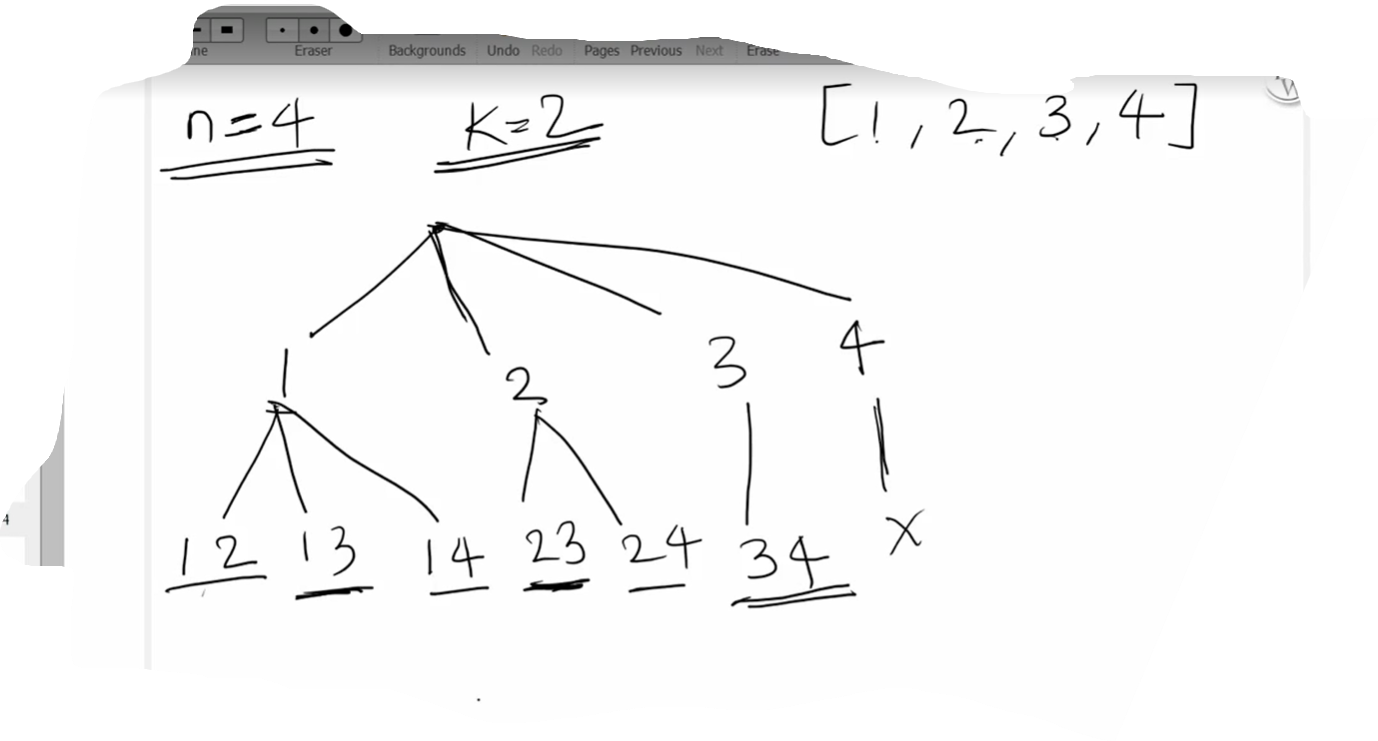 ne Eraser Backgrounds Undo Redo Pages Previous Next Erase
n=4 K=2 [1, 2, 3, 4]
1 2 3 4
12 13 14 23 24 34 X
4